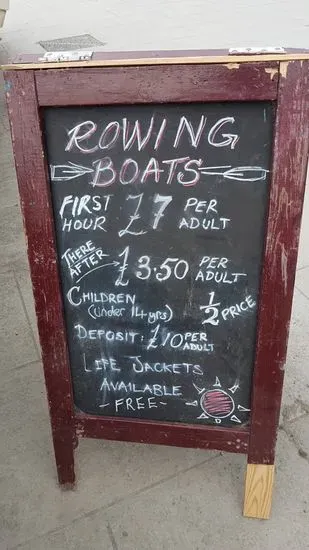 ROWING
BOATS
FIRST HOUR £7 PER ADULT
THERE AFTER £3.50 PER ADULT
CHILDREN (under 14yrs) ½ PRICE
DEPOSIT: £10 PER ADULT
LIFE JACKETS
AVAILABLE
- FREE -